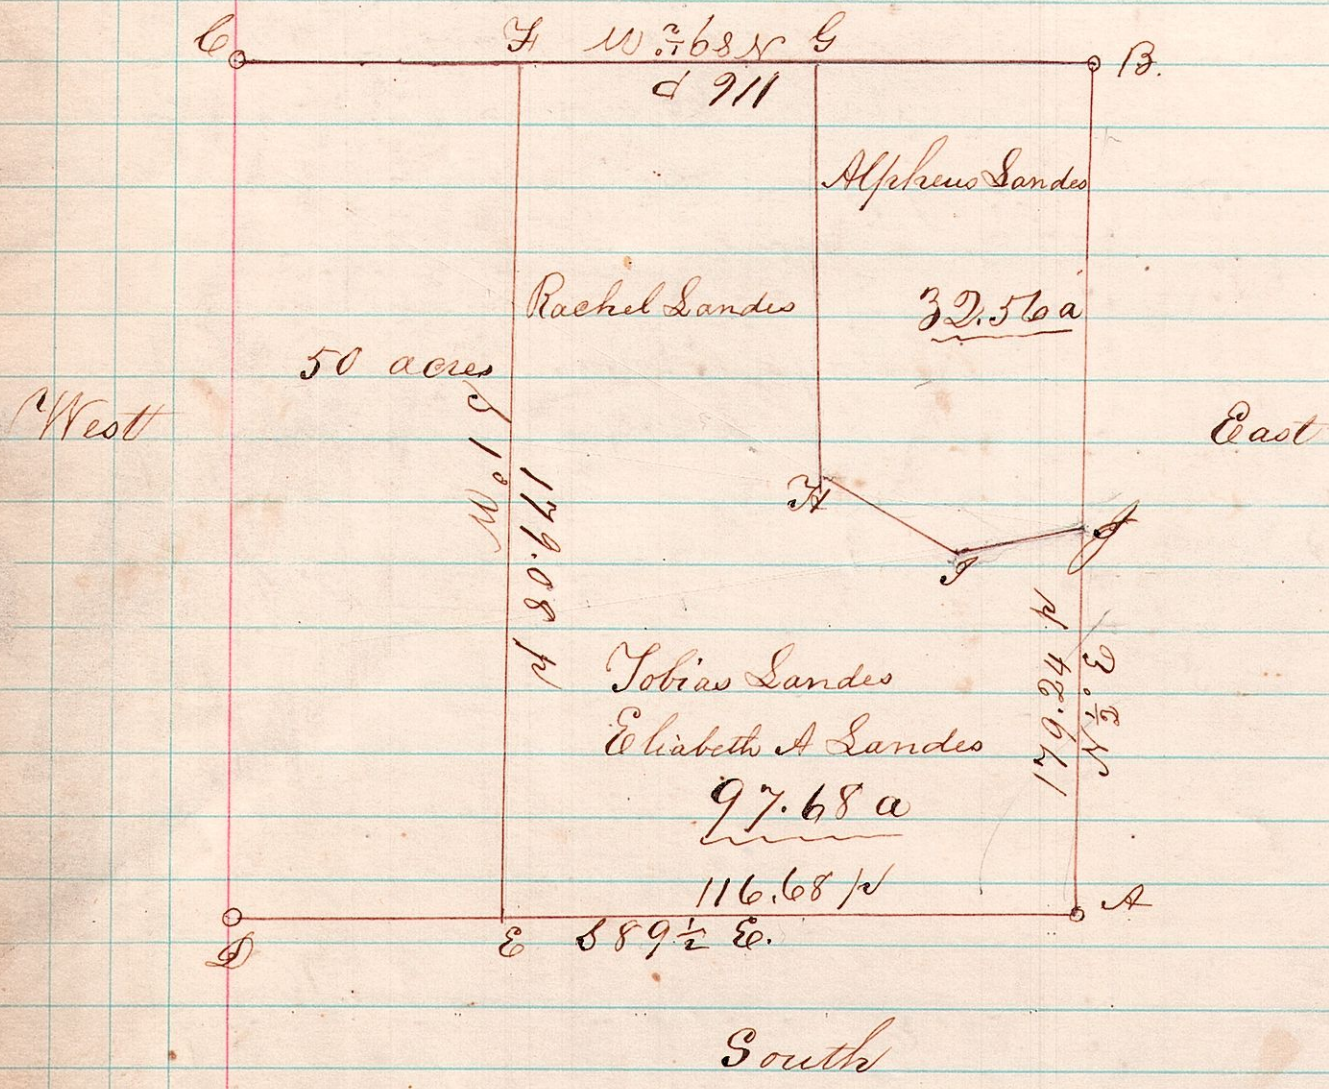 C F N 89 1/2 W G B.
116 p
Alpheus Landes
Rachel Landes
32.56 a
50 acres
West
East
S 1° W
179.08 p
H
J
I
176.24 p
N 1/2° E
Tobias Landes
Eliabeth A Landes
97.68 a
116.68 p
A
D E S 89 1/2 E.
South